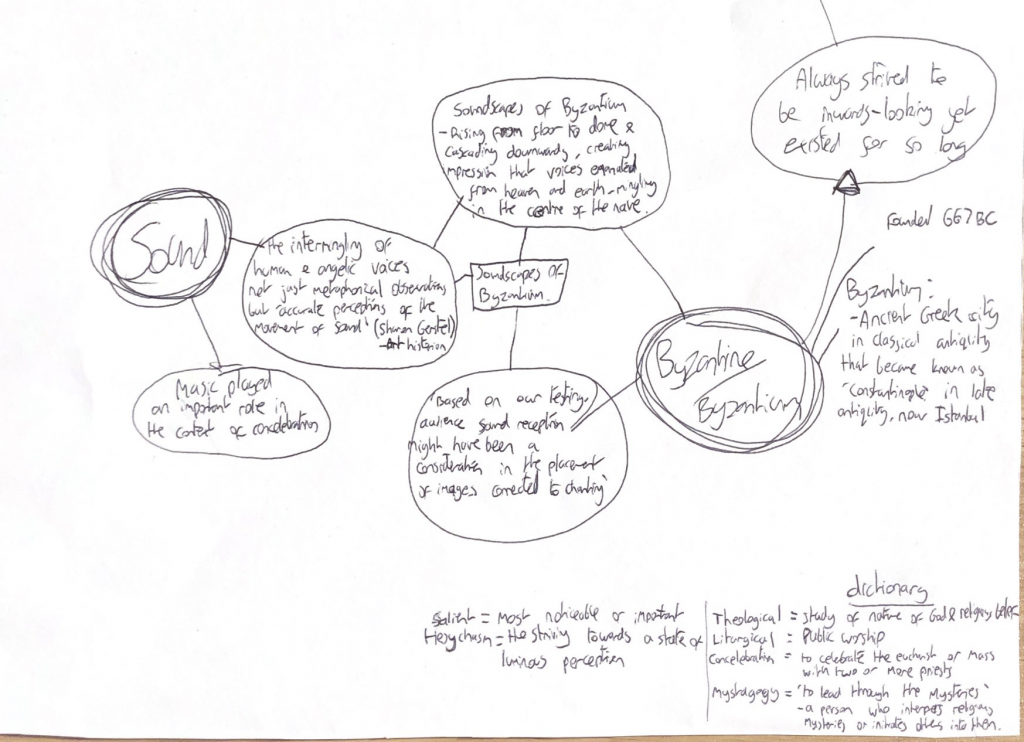 Always strived to
be inwards-looking yet
existed for so long
Soundscapes of Byzantium
- Rising from floor to dome &
cascading downwards, creating
impression that voices emanated
from heaven and earth - mingling
in the centre of the nave.
Sound
the intermingling of
human & angelic voices
not just metaphorical observations
but "accurate perceptions of the
movement of sound" (Sharon Gerstel)
- Art historian
Soundscapes Of
Byzantium.
Founded 667BC
Byzantium:
- Ancient Greek city
in classical antiquity
that became known as
"Constantinople" in late
antiquity, now Istanbul
Byzantine
Byzantium
Music played
an important role in
the context of concelebration
"Based on our testing,
audience sound reception
might have been a
consideration in the placement
of images connected to chanting"
dictionary
Salient = Most noticeable or important
Hesychasm = the striving towards a state of
luminous perception
Theological = study of nature of God & religious belief
Liturgical = Public worship
Concelebration = to celebrate the eucharist or mass
with two or more priests
Mystagogy = "to lead through the mysteries"
- a person who interprets religious
mysteries or initiates others into them.